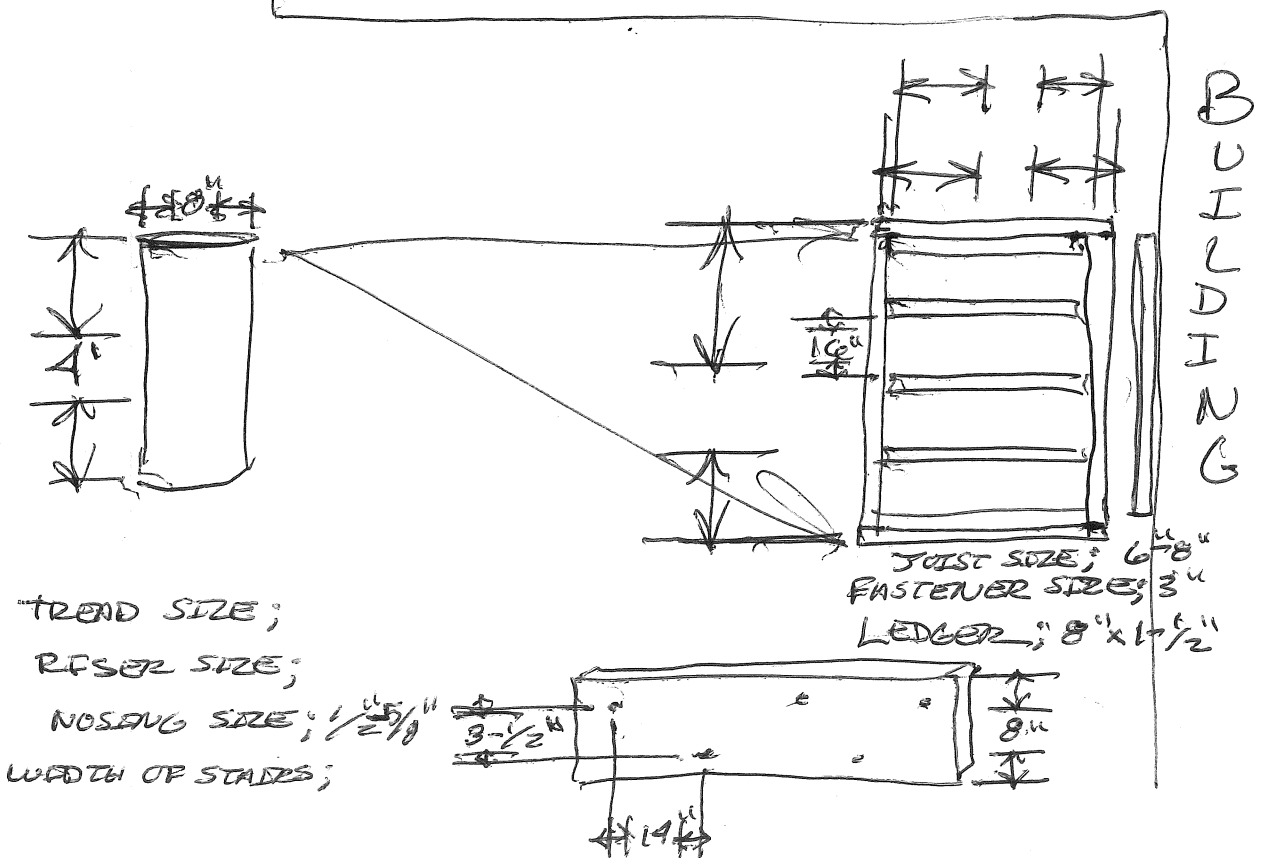 BUILDING
8"
4'
16"
JOIST SIZE; 6"-8"
FASTENER SIZE; 3"
LEDGER; 8" x 1-1/2"
TREAD SIZE;
RISER SIZE;
NOSING SIZE; 1/2"-5/8"
WIDTH OF STAIRS;
3-1/2"
8"
14"